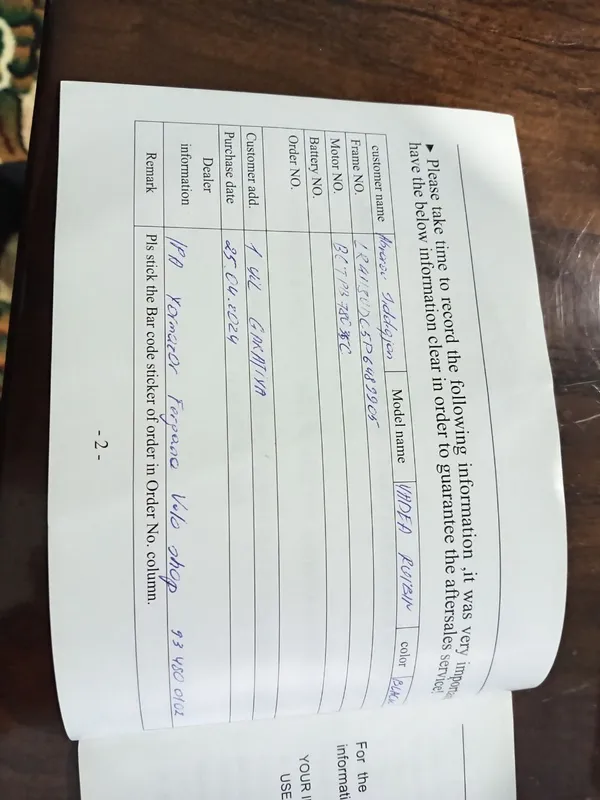 ► Please take time to record the following information ,it was very importa
have the below information clear in order to guarantee the aftersales service!
customer name Model name YADEA RUIBIN color Black
Frame NO.
Motor NO.
Battery NO.
Order NO.
Customer add. 1 УЛ
Purchase date 25.04.2024
Dealer
information Fergana Velo shop 93 480 0102
Remark Pls stick the Bar code sticker of order in Order No. column.
- 2 -
For the
informati
YOUR I
USE